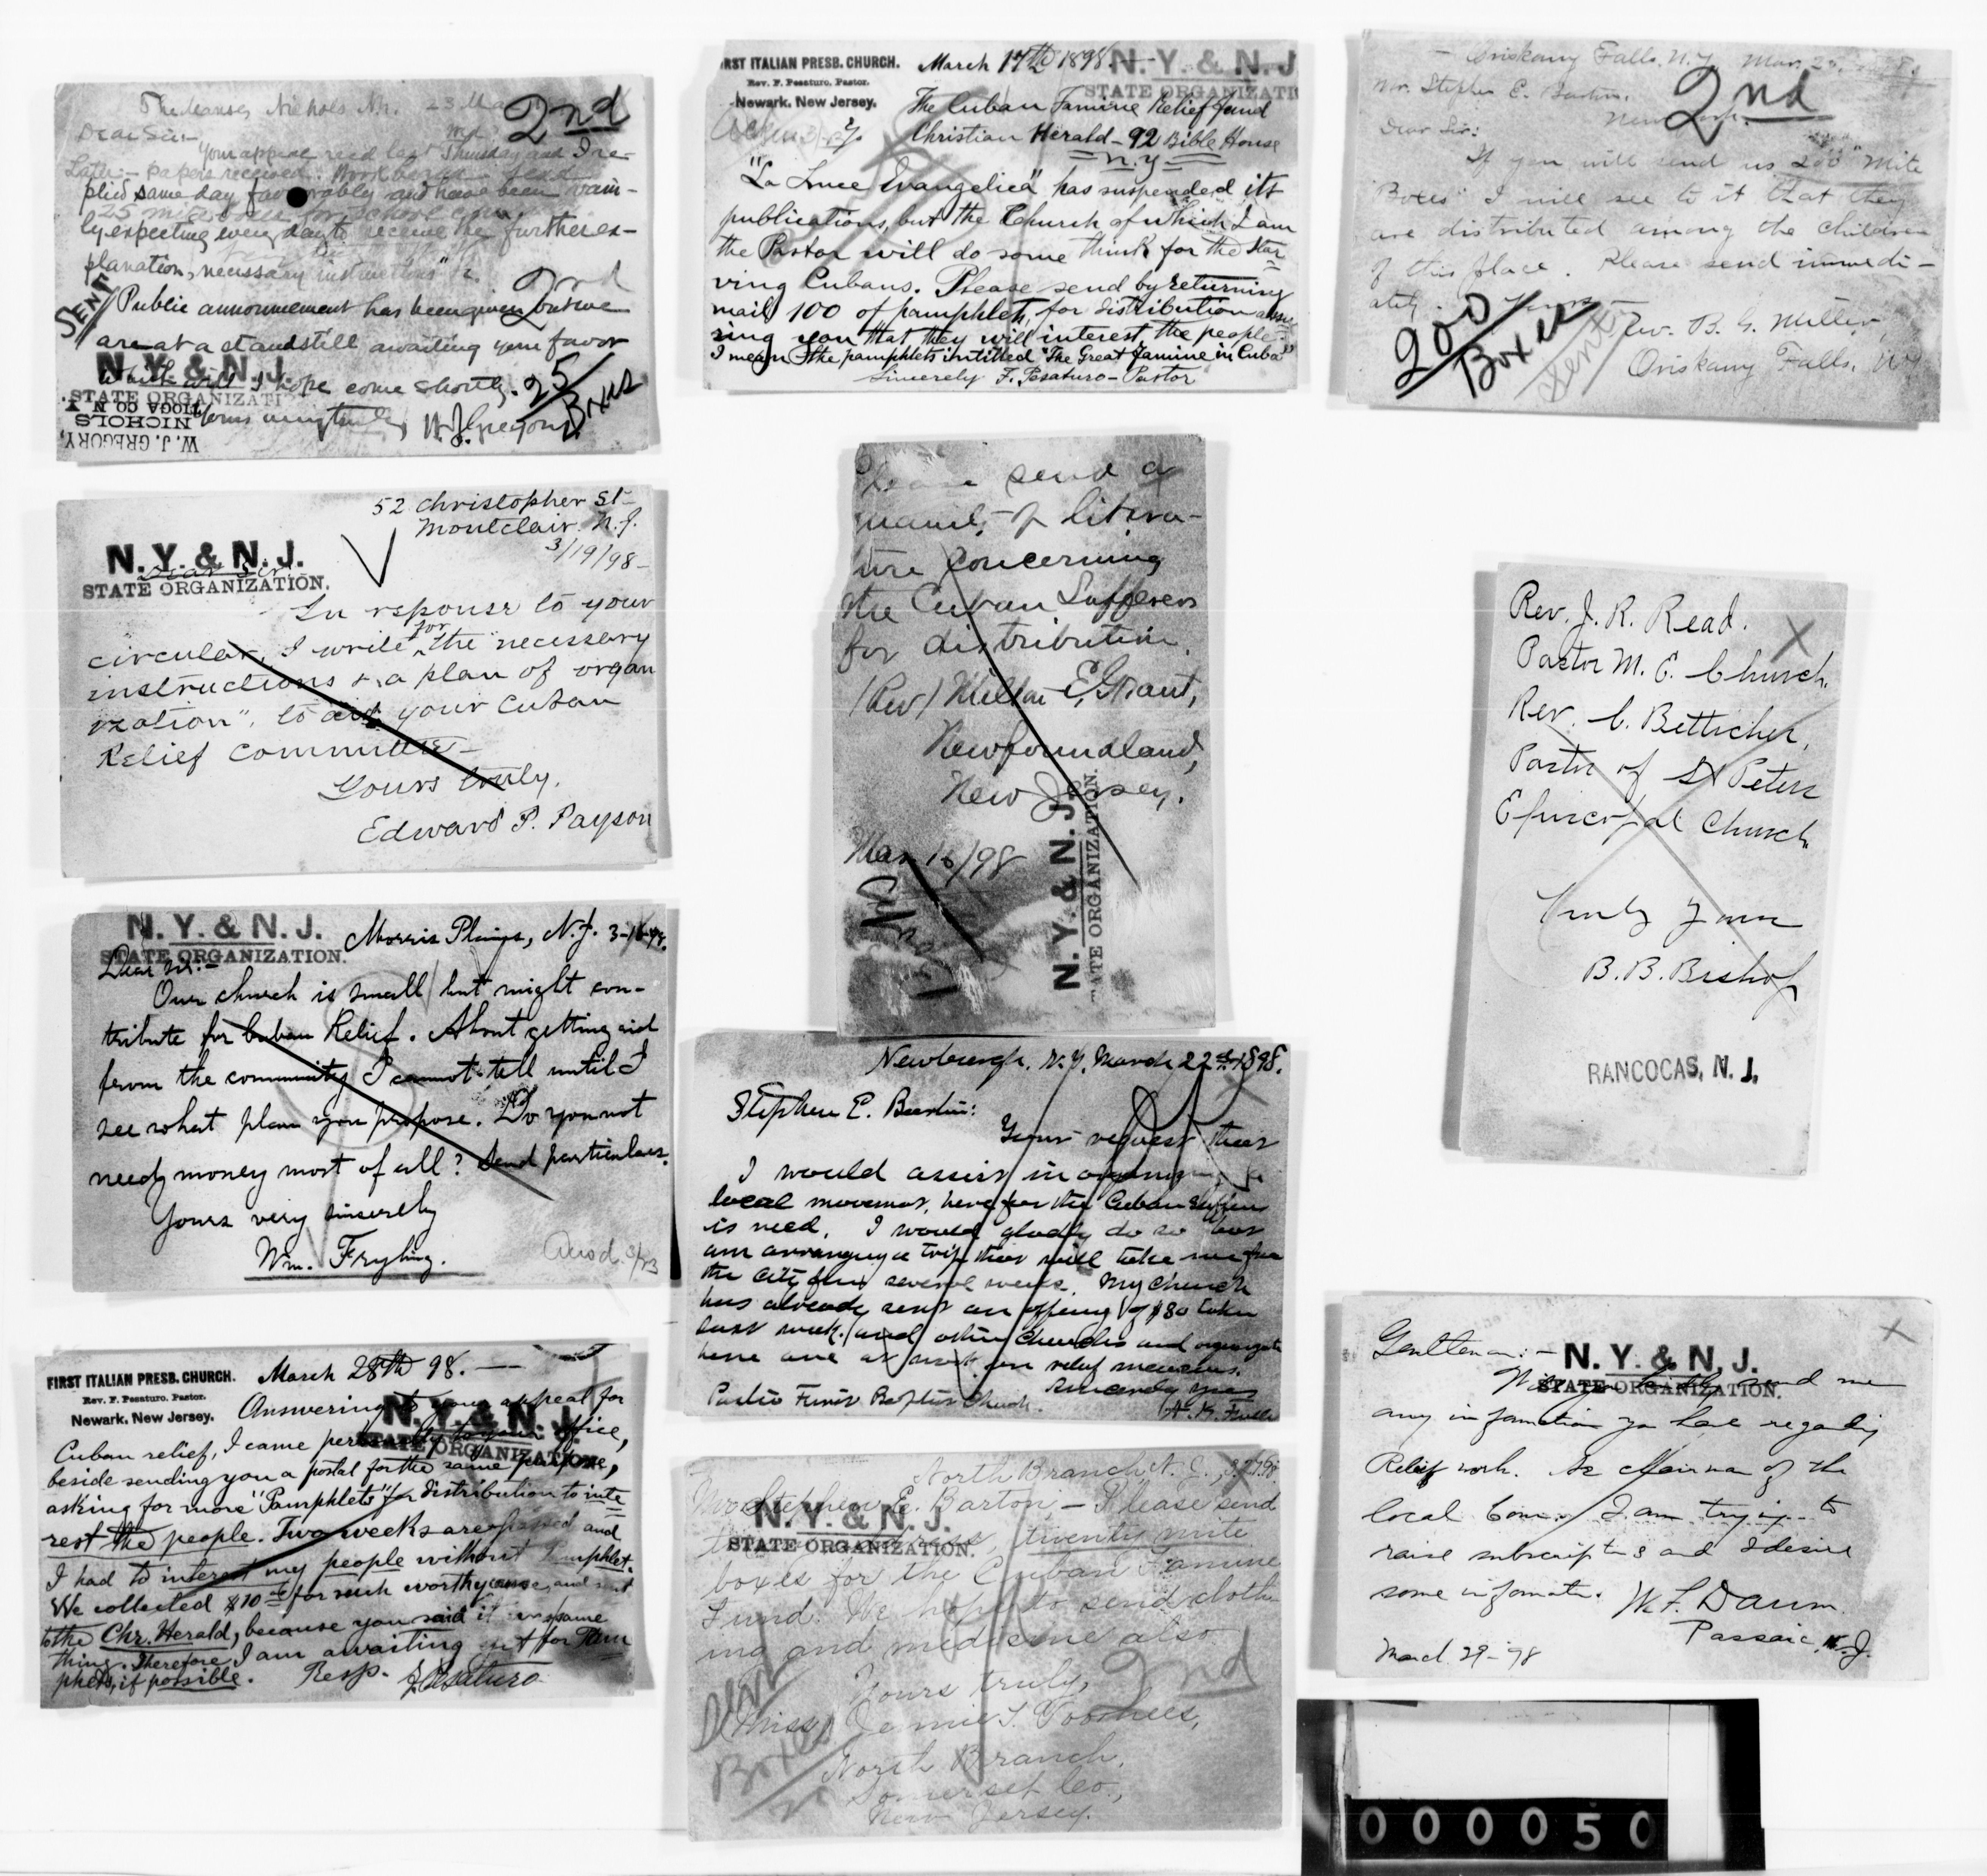 The Manse, Nichols N.Y. 23 Mar
2nd
Dear Sir:-
Your appeal recd last Thursday and I re-
Later:- papers received.
plied same day favorably and have been vain-
25 mite boxes for school
ly expecting every day to receive the further ex-
planation, necessary instructions" &
2nd
SENT
Public announcement has been given but we
are at a standstill awaiting your favor
which will I hope come shortly.
N. Y. & N. J.
STATE ORGANIZATI
25
Boxes
Yours very truly, W. J. Gregory
W. J. GREGORY,
NICHOLS
TIOGA CO N Y
52 Christopher St-
Montclair. N.J.
3/19/98-
N. Y. & N. J.
STATE ORGANIZATION.
Dear Sir
In reponse to your
circular, I write for the "necessary
instructions & a plan of organ
ization", to aid your Cuban
Relief Committee-
Yours truly,
Edward P. Payson
N. Y. & N. J.
STATE ORGANIZATION.
Morris Plains, N.J. 3-18-98.
Dear Sir:-
Our church is small but might con-
tribute for Cuban Relief. About getting aid
from the community I cannot tell until I
see what plan you propose. Do you not
need money most of all? Send particulars.
Yours very sincerely
Wm. Fryling.
Ansd. 3/23
FIRST ITALIAN PRESB. CHURCH.
Rev. F. Pesaturo. Pastor.
Newark, New Jersey.
March 28th 98.
N. Y. & N. J.
STATE ORGANIZATION.
Answering to your appeal for
Cuban relief, I came personally to your office,
beside sending you a postal for the same purpose,
asking for more "Pamphlets" for distribution to inte
rest the people. Two weeks are passed and
I had to interest my people without Pamphlet.
We collected $10 for such worthy cause, and sent
to the Chr. Herald, because you said it was same
thing. Therefore I am awaiting yet for Pam
phets, if possible. Resp. F. Pesaturo
RST ITALIAN PRESB. CHURCH.
Rev. F. Pesaturo. Pastor.
Newark, New Jersey.
March 17th 1898.
N. Y. & N. J
STATE ORGANIZATI
The Cuban Famine Relief fund
Christian Herald - 92 Bible House
N.Y
"La Luce Evangelica" has suspended its
publications, but the Church of which I am
the Pastor will do some think for the star
ving Cubans. Please send by returning
mail 100 of pamphlets, for distribution assu
ring you that they will interest the people.
I mean the pamphlets intitled "The Great Famine in Cuba"
Sincerely F. Pesaturo - Pastor
Please send a
quantity of litera-
ture concerning
the Cuban Sufferers
for distribution.
(Rev) Milton E. Grant,
Newfoundland,
New Jersey.
Mar 16/98
N. Y. & N. J.
STATE ORGANIZATION.
Newburgh, N.Y. March 22nd 1898.
Stephen E. Barton:
Your request that
I would assist in organizing a
local movement here for the Cuban sufferers
is recd. I would gladly do so but
am arranging a trip that will take me from
the city for several weeks. My church
has already sent an offering of $80 taken
last week. and other Churches and organizations
here are at work on relief measures.
Sincerely yours
Pastor First Baptist Church.
North Branch, N. J.
Mr. Stephen E. Barton - Please send
N. Y. & N. J.
STATE ORGANIZATION.
twenty mite
boxes for the Cuban Famine
Fund. We hope to send cloth
ing and medicine also
2nd
Yours truly,
Sent
Boxes
Miss Jennie T. Voorhees,
North Branch,
Somerset Co.,
New Jersey.
Oriskany Falls, N.Y. Mar. 23,
Mr. Stephen E. Barton,
New York.
2nd
Dear Sir:
If you will send us 200 "Mite
Boxes" I will see to it that they
are distributed among the children
of this place. Please send immedi-
ately. Yours
200
Boxes
Sent
Rev. B. G. Miller,
Oriskany Falls, NY
Rev. J. R. Read.
Pastor M. E. Church.
Rev. C. Betticher,
Pastor of St Peters
Episcopal Church.
Truly Yours
B. B. Bishop
RANCOCAS, N. J.
Gentlemen:-
N. Y. & N. J.
STATE ORGANIZATION.
Will you kindly send me
any information you have regarding
Relief work. As Chairman of the
local Com. I am trying to
raise subscriptns and I desire
some informatn. W. F. Daum
Passaic, N. J.
March 29-98
000050